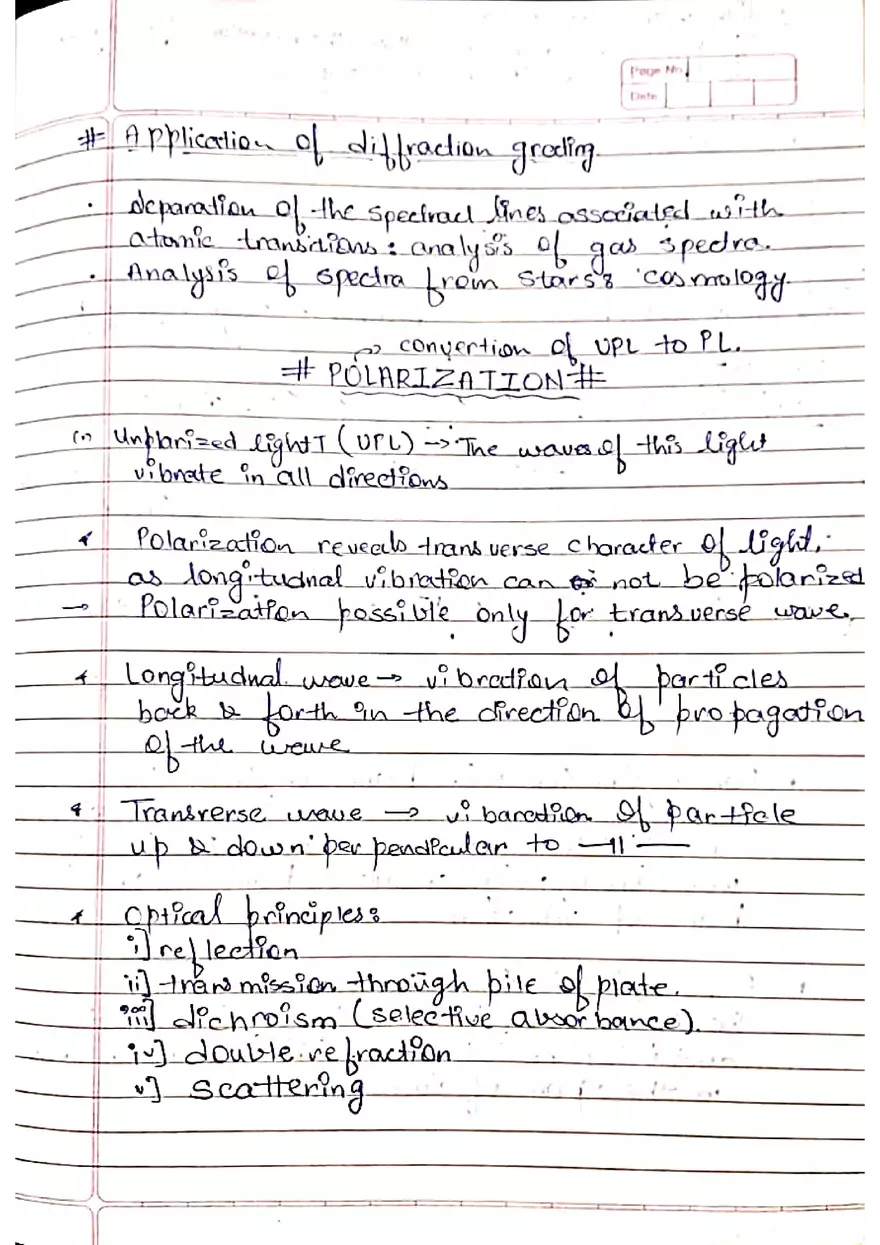 Page No.
Date
# Application of diffraction grading.
· Separation of the spectracl lines associated with
atomic transictions: analysis of gas spedra.
· Analysis of spectra from stars: cosmology.
→ convertion of UPL to PL.
# POLARIZATION #
(i) Unplarized lightT (UPL) → The waves of this light
vibrate in all directions
* Polarization reveals transverse character of light,
as longitudnal vibration can not be polarized
→ Polarization possible only for transverse wave.
* Longitudnal wave → vibration of particles
back & forth in the direction of propagation
of the wave
* Transverse wave → vibaration of particle
up & down perpendicular to —11—
* Optical principles:
i] reflection
ii] transmission through pile of plate.
iii] dichroism (selective absorbance).
iv] double refraction
v] scattering